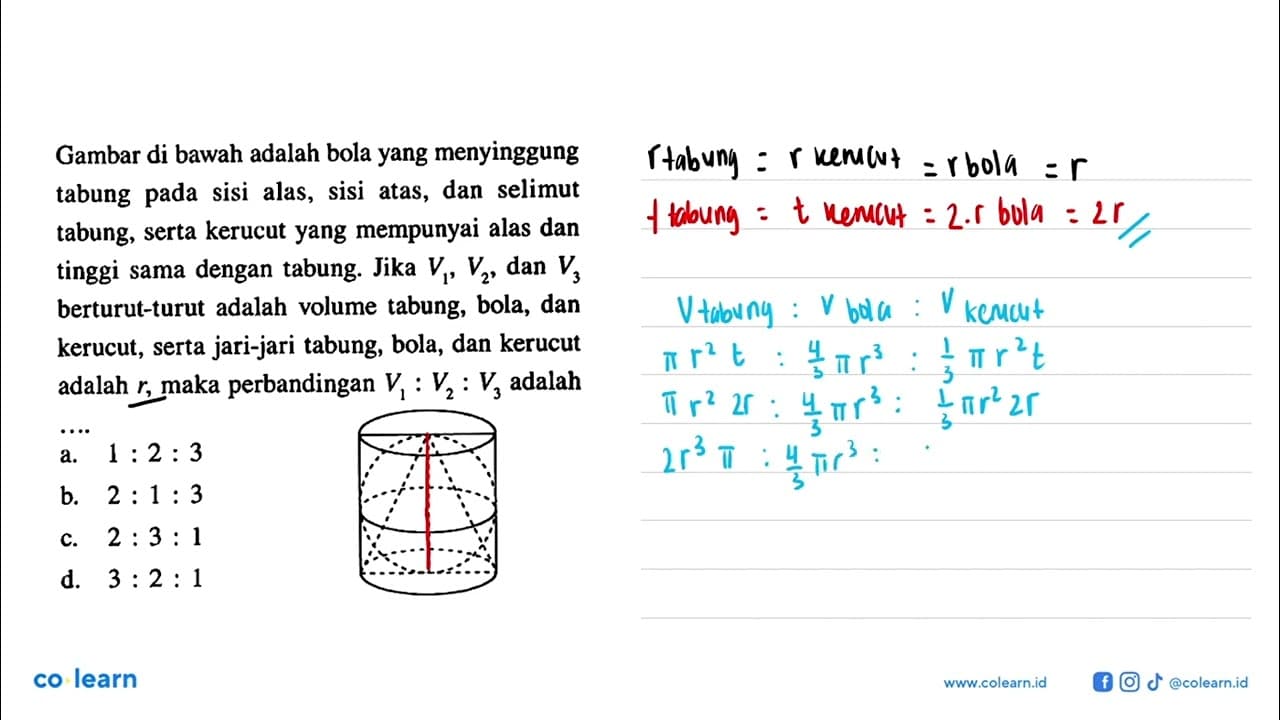 Gambar di bawah adalah bola yang menyinggung
tabung pada sisi alas, sisi atas, dan selimut
tabung, serta kerucut yang mempunyai alas dan
tinggi sama dengan tabung. Jika V₁, V₂, dan V₃
berturut-turut adalah volume tabung, bola, dan
kerucut, serta jari-jari tabung, bola, dan kerucut
adalah r, maka perbandingan V₁ : V₂ : V₃ adalah
....
a. 1 : 2 : 3
b. 2 : 1 : 3
c. 2 : 3 : 1
d. 3 : 2 : 1
r tabung = r kerucut = r bola = r
t tabung = t kerucut = 2.r bola = 2r
V tabung : V bola : V kerucut
π r² t : 4/3 π r³ : 1/3 π r² t
π r² 2r : 4/3 π r³ : 1/3 π r² 2r
2r³ π : 4/3 π r³ :
co learn
www.colearn.id
@colearn.id